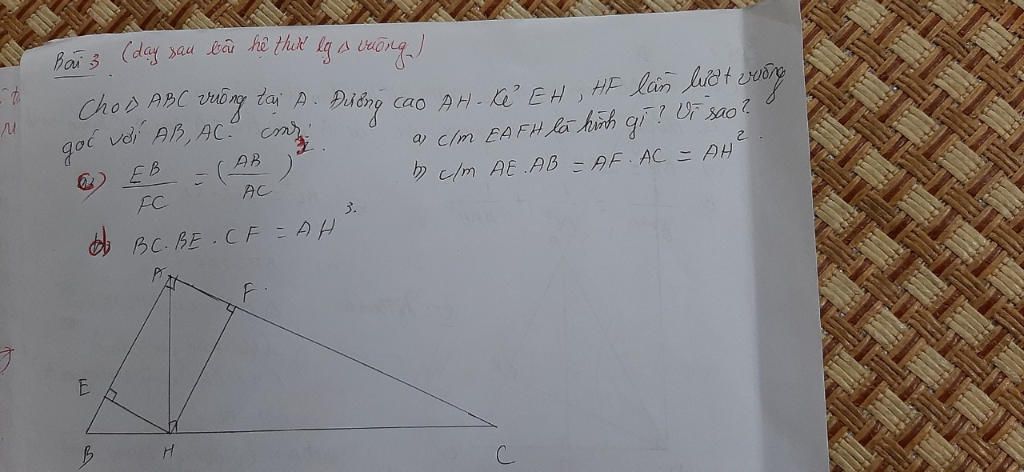 Bài 3 (dạy sau bài hệ thức lg △ vuông)
Cho △ ABC vuông tại A. Đường cao AH. Kẻ EH, HF lần lượt vuông
góc với AB, AC. cmr:
a) c/m EAFH là hình gì? Vì sao?
b) c/m AE.AB = AF.AC = AH².
c) EB/FC = (AB/AC)³.
d) BC.BE.CF = AH³.
A
F
E
B
H
C